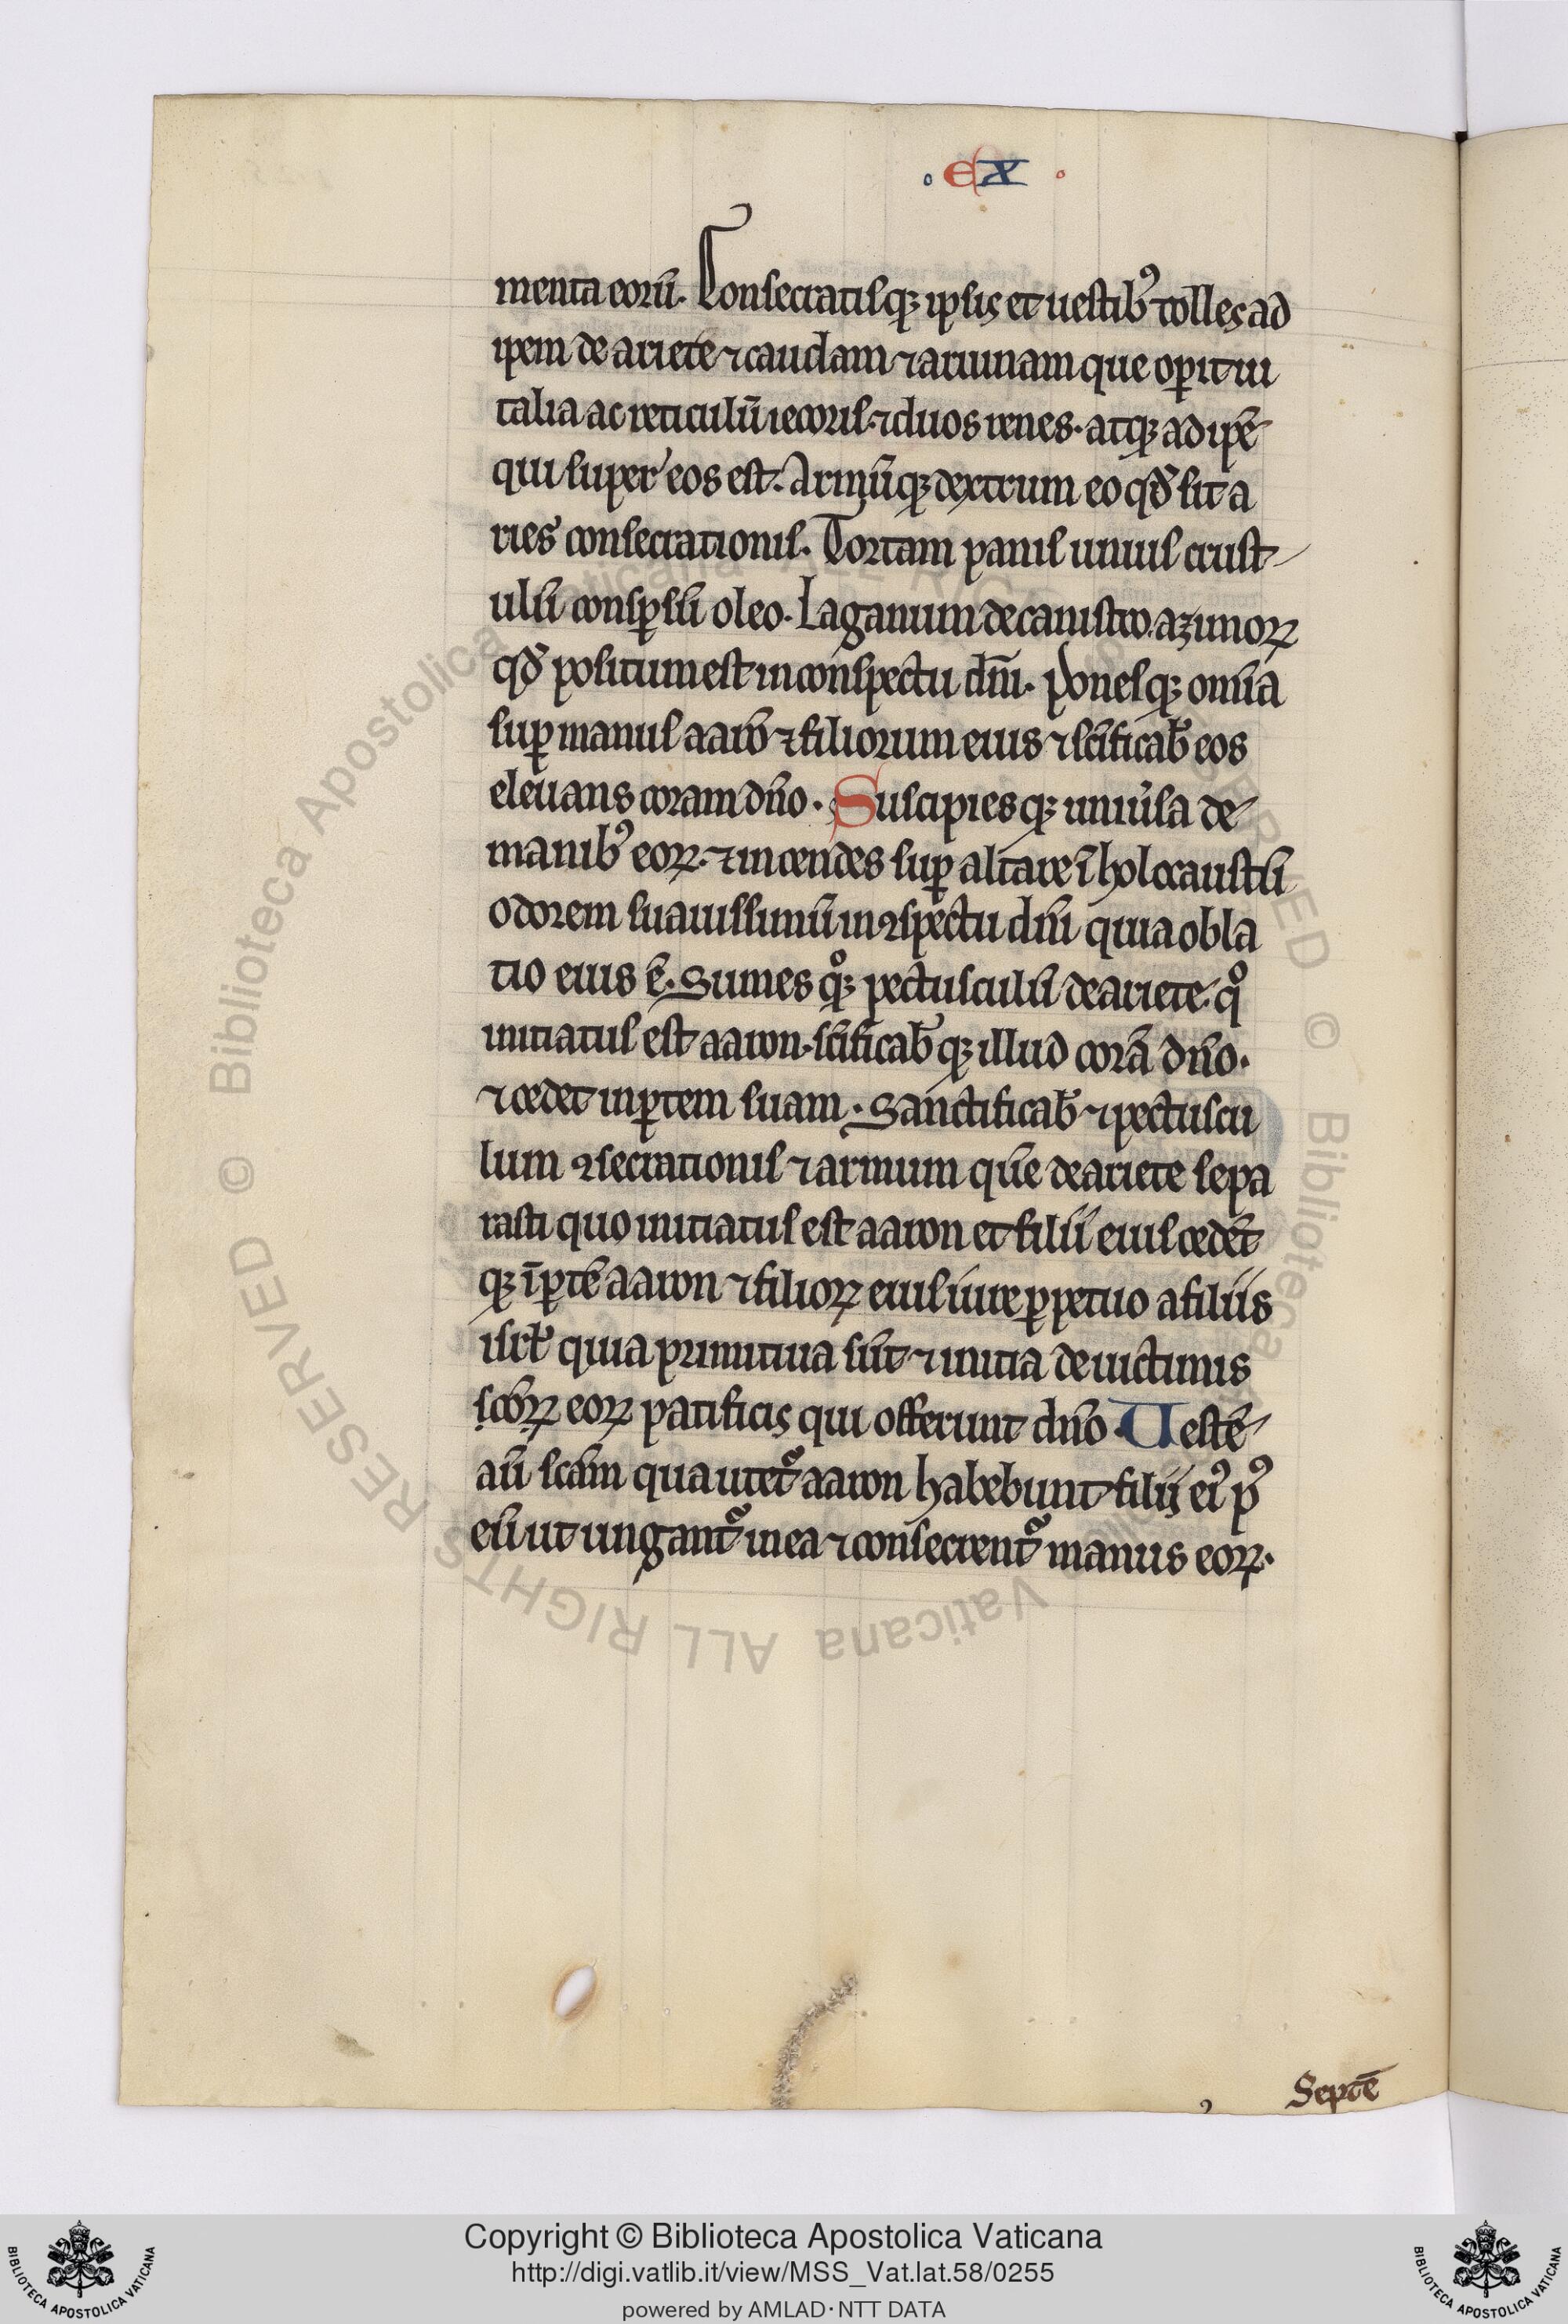 · EX ·
menta eorū. Consecratisqꝫ ipsis et uestibꝰ tolles ad
ipem de ariete ⁊ caudam ⁊ aruinam que oꝑit ui
talia ac reticulū iecoris. ⁊ duos renes. atqꝫ adipē
qui super eos est. Armūqꝫ dextrum eo qd̓ sit a
ries consecrationis. Tortam panis unius crust
ulū consꝑsū oleo. Laganum de canistro azimoꝝ
qd̓ positum est in conspectu dn̄i. Ponesqꝫ omīa
suꝑ manus aarō ⁊ filiorum eius ⁊ sc̄ificab̓ eos
eleuans coram dn̄o. Suscipiesqꝫ uniūsa de
manibꝰ eoꝝ. ⁊ incendes suꝑ altare ī holocaustū
odorem suauissimū in ꝯspectu dn̄i quia obla
tio eius ē. Sumes qͦꝫ pectusculū de ariete. qͦ
initiatus est aaron. sc̄ificab̓qꝫ illud corā dn̄o.
⁊ cedet in ꝑtem suam. Sanctificab̓ ⁊ pectuscu
lum ꝯsecrationis ⁊ armum quē de ariete sepa
rasti quo initiatus est aaron et filii eius cedēt
qꝫ ī ꝑtē aaron ⁊ filioꝝ eius iure ꝑpetuo a filiis
isrl̓ quia primitiua sūt ⁊ initia de uictimis
sc̄oꝝ eoꝝ pacificis qui offerunt dn̄o. Uestē
aū scām qua utet᷑ aaron habebunt filij eiꝰ pꝰ
eū ut ungant᷑ in ea ⁊ consecrent᷑ manus eoꝝ.
Septē
Copyright © Biblioteca Apostolica Vaticana
http://digi.vatlib.it/view/MSS_Vat.lat.58/0255
powered by AMLAD·NTT DATA
BIBLIOTECA APOSTOLICA VATICANA
BIBLIOTECA APOSTOLICA VATICANA
© Biblioteca Apostolica Vaticana ALL RIGHTS RESERVED
© Biblioteca Apostolica Vaticana ALL RIGHTS RESERVED